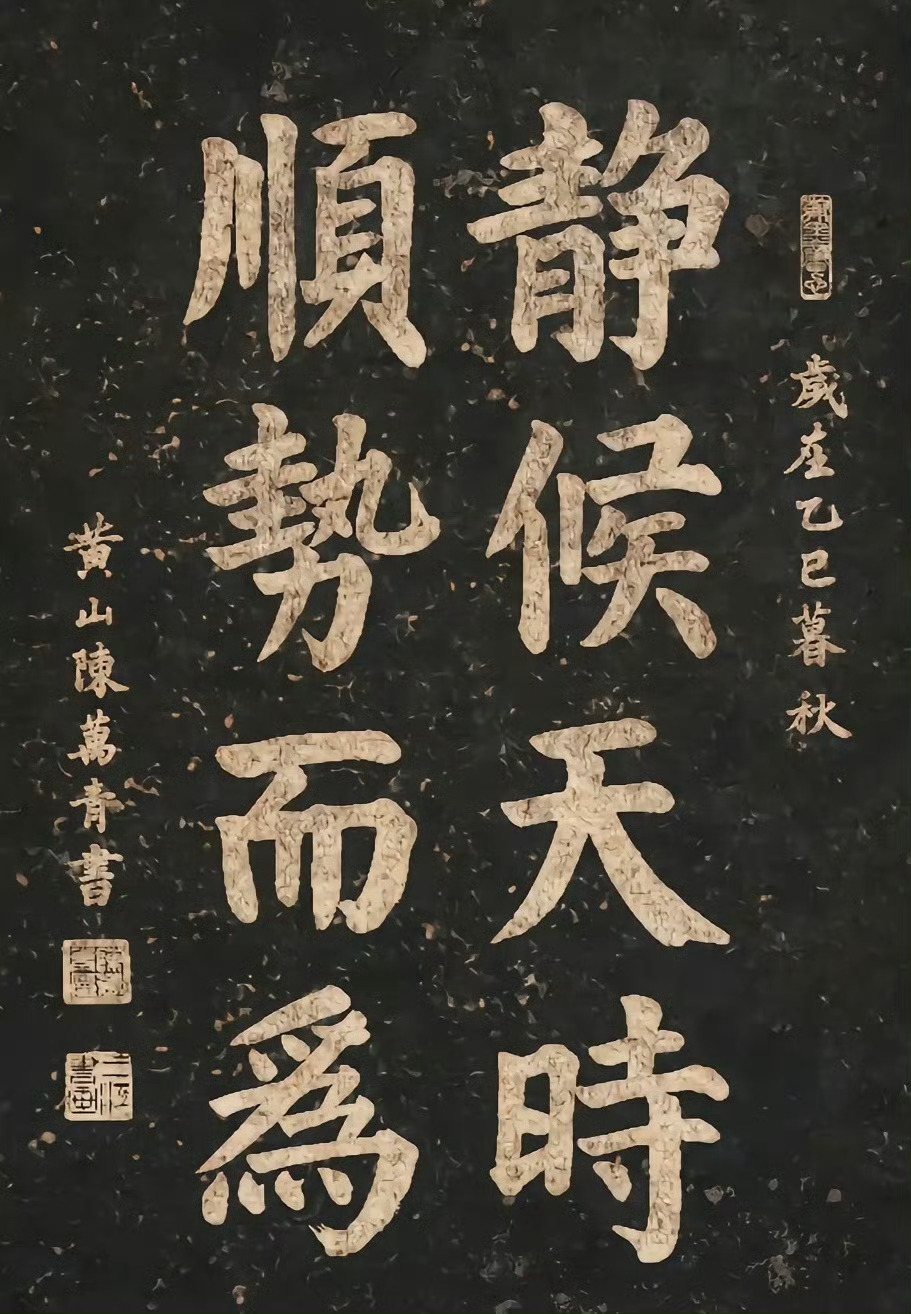 歲在乙巳暮秋
静候天時
順勢而為
黄山陳萬青書